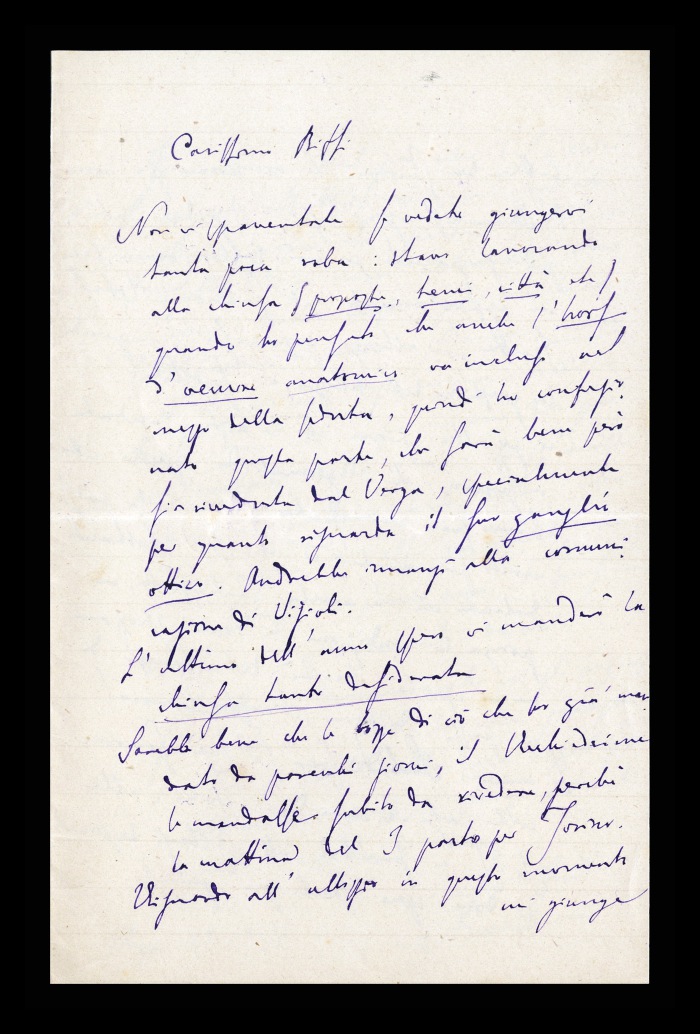 Carissimo Biffi
Non vi spaventate se vedete giungervi
tanta poca roba: stavo lavorando
alla chiusa (proposte, temi, città etc)
quando ho pensato che anche
d'oeuvre anatomico va incluso nel
mezzo della seduta, quindi ho confezio-
nato questa parte, che sarà bene però
sia riveduta dal Verga, specialmente
per quanto riguarda il suo ganglio
ottico. Andrebbe innanzi alla comuni-
cazione di Vizioli.
L'ultimo dell'anno spero vi manderò la
chiusa tanto desiderata
Sarebbe bene che le bozze di ciò che ho già man-
dato da parecchi giorni, il Rechiedei me
le mandasse subito da rivedere, perché
la mattina del 3 parto per Torino.
Riguardo all' in questo momento
mi giunge